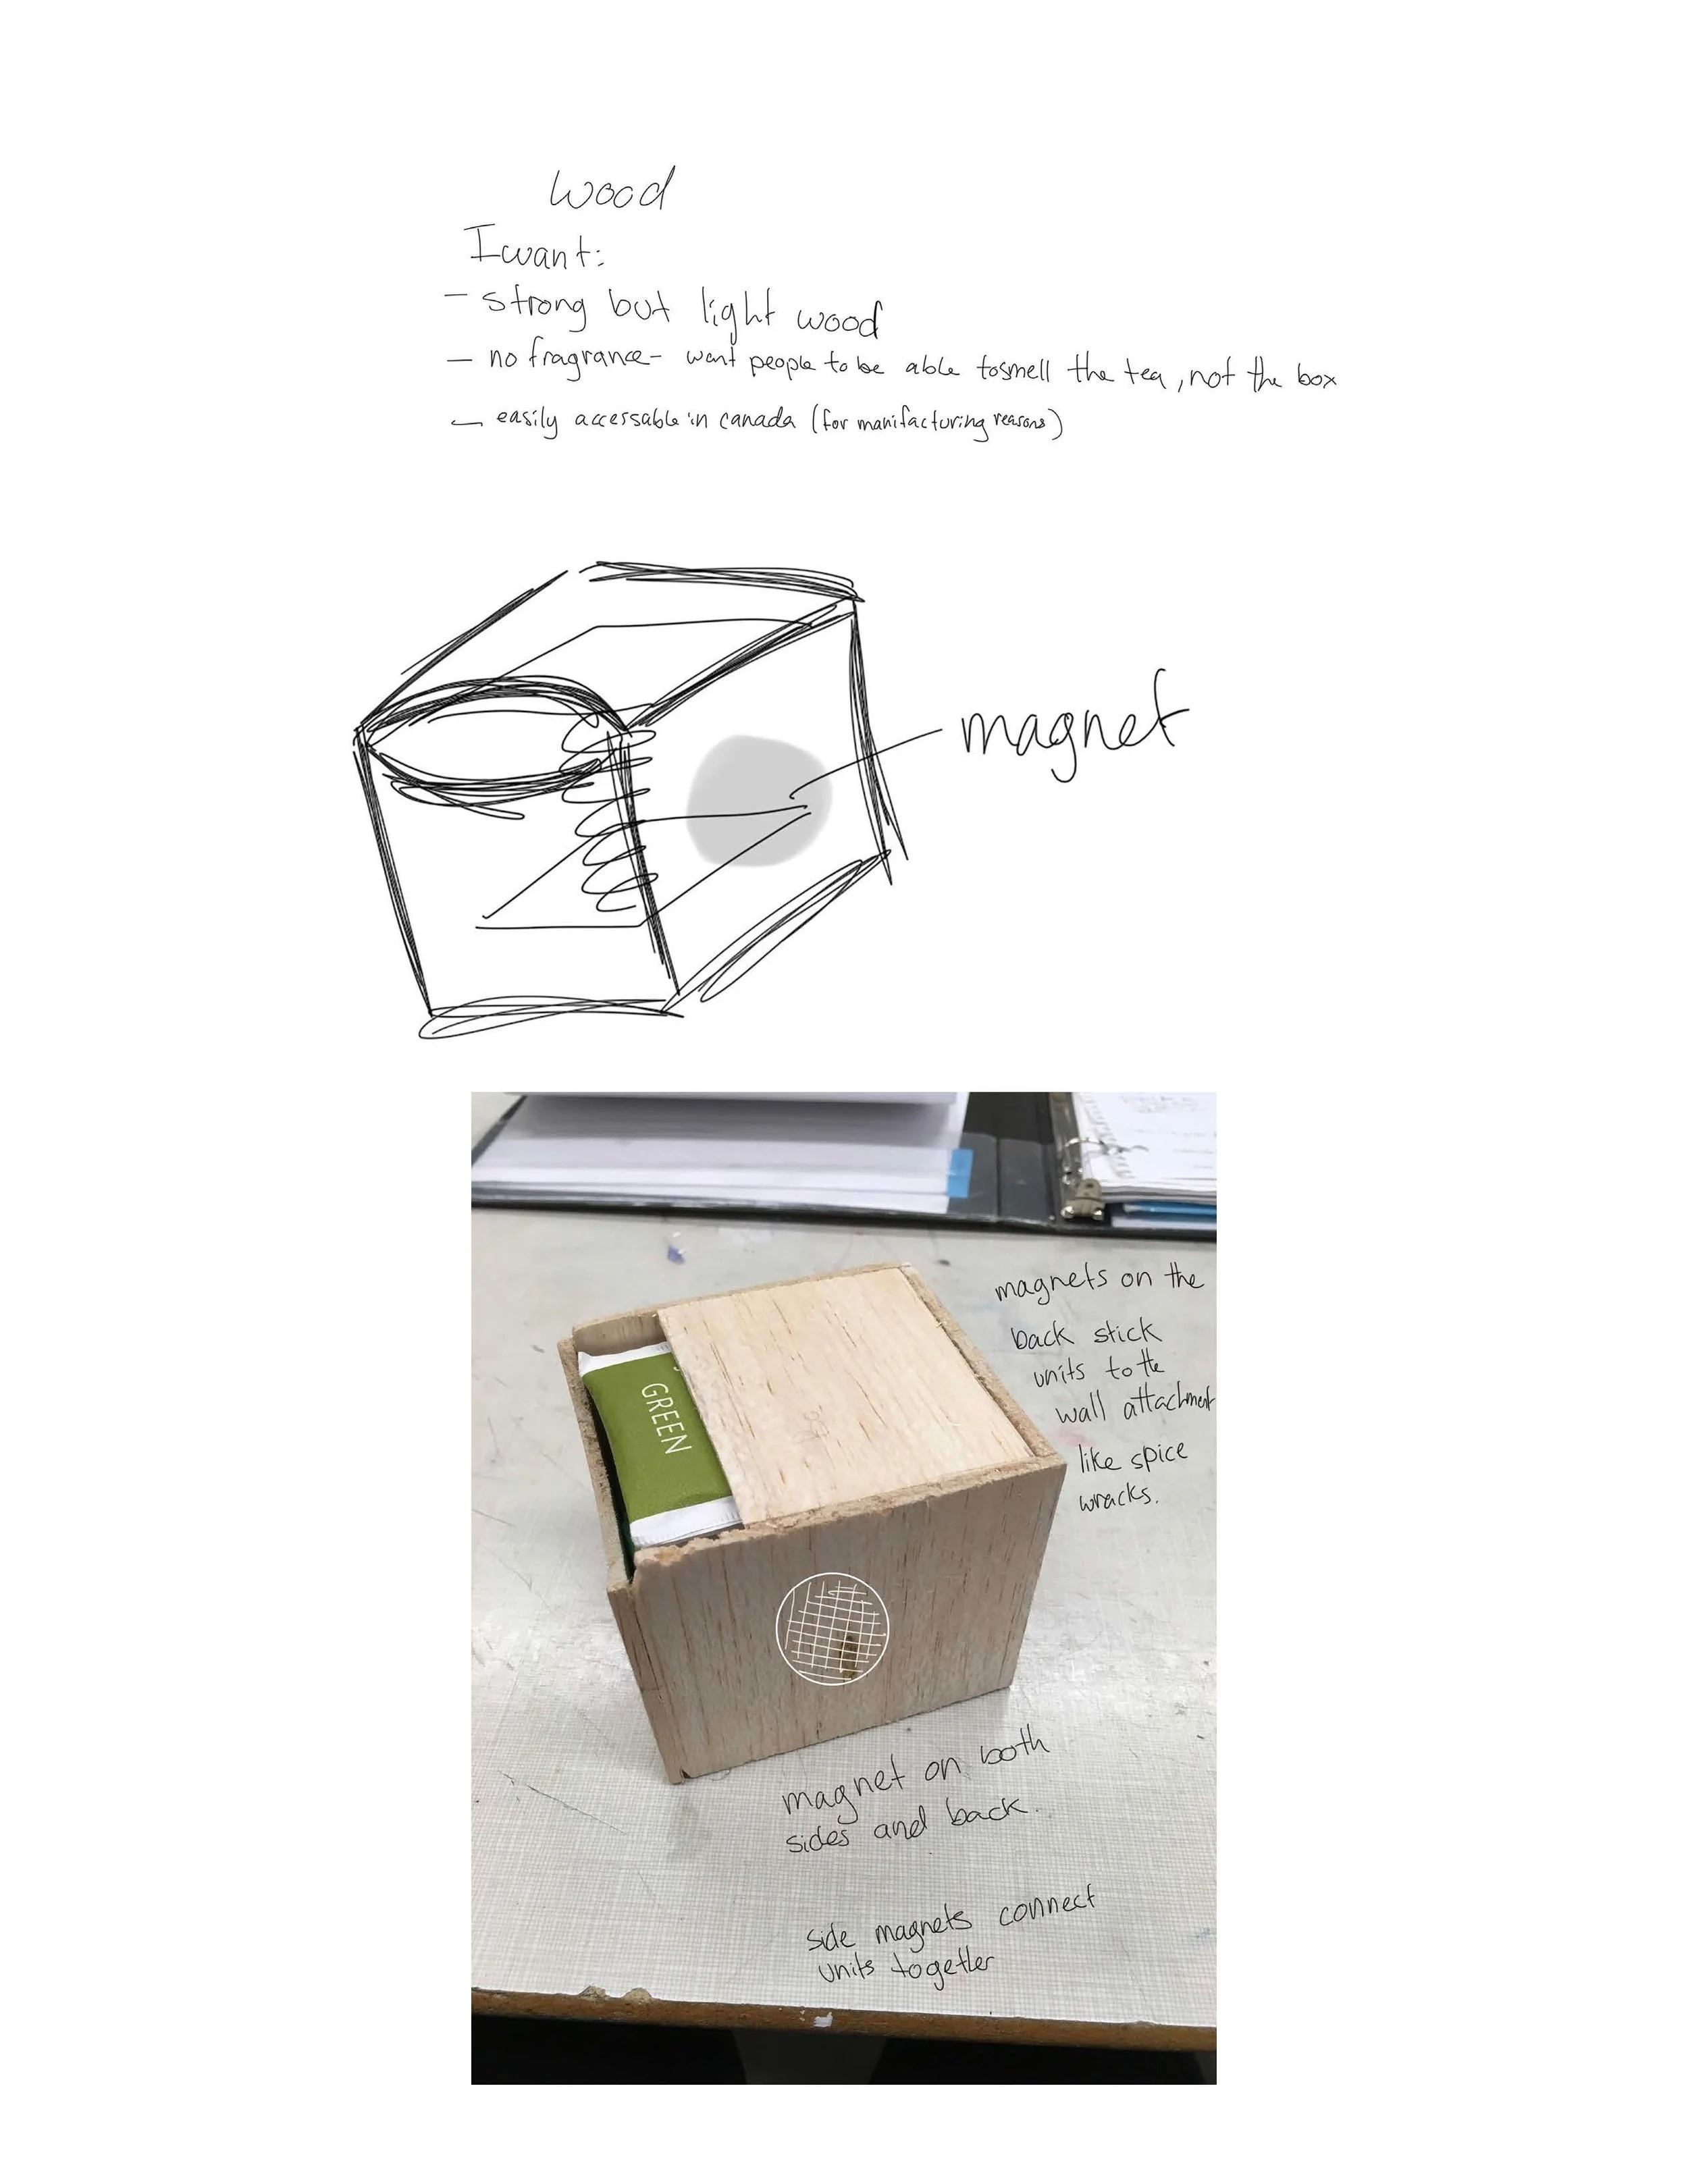 wood
I want:
- strong but light wood
- no fragrance - want people to be able to smell the tea, not the box
- easily accessable in canada (for manifacturing reasons)
magnet
magnets on the
back stick
units to the
wall attachment
like spice
wracks.
GREEN
magnet on both
sides and back.
side magnets connect
units together